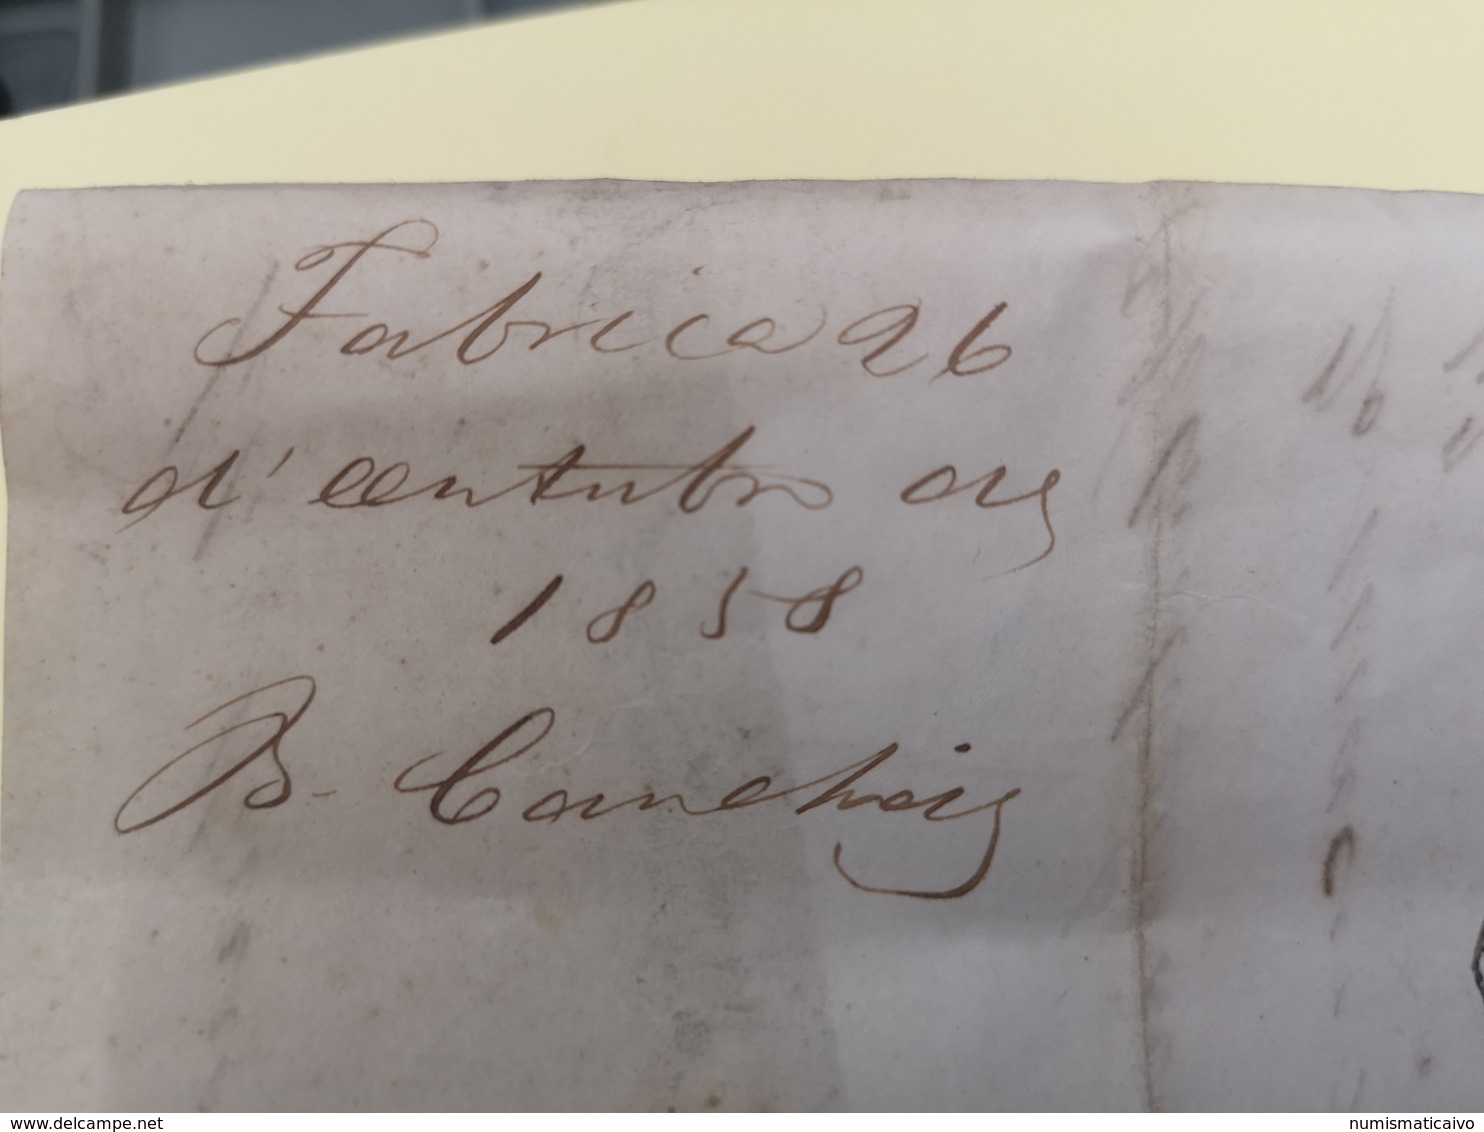 Fabrica 26
d'outubro de
1858
B.
delcampe.net
numismaticaivo